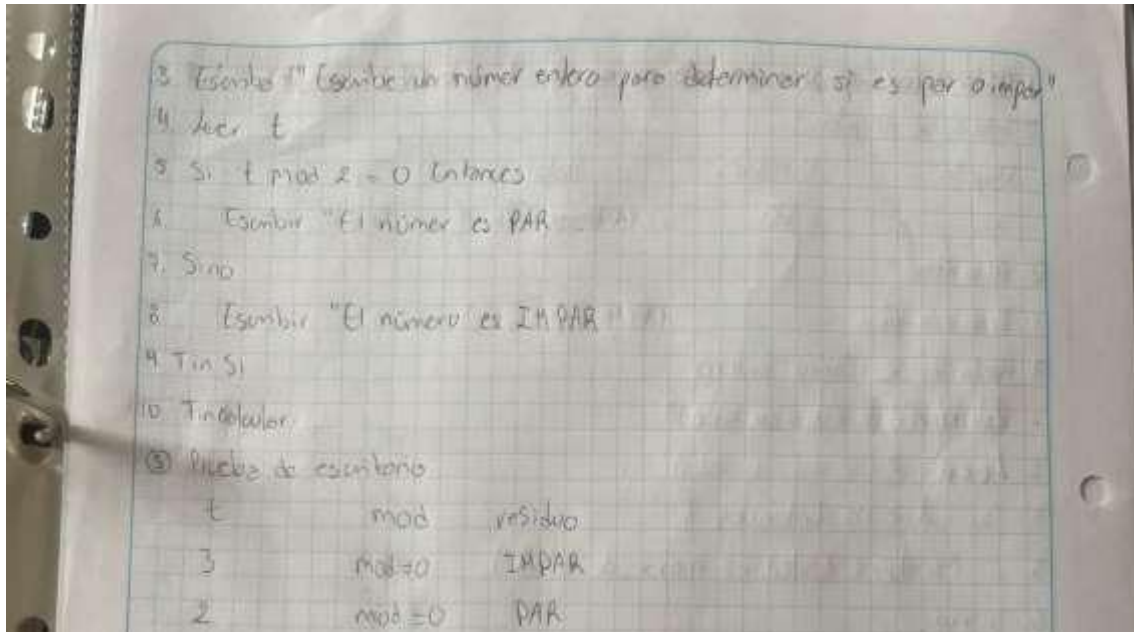 3. Escribe "Escribe un númer entero para determinar si es par o impar"
4. Leer t
5. Si t mod 2 = 0 Entonces
6. Escribir "El númer es PAR
7. Sino
8. Escribir "El número es IMPAR"
9. Fin Si
10. Fin
③ Prueba de escritorio
t mod residuo
3 mod≠0 IMPAR
2 mod=0 PAR